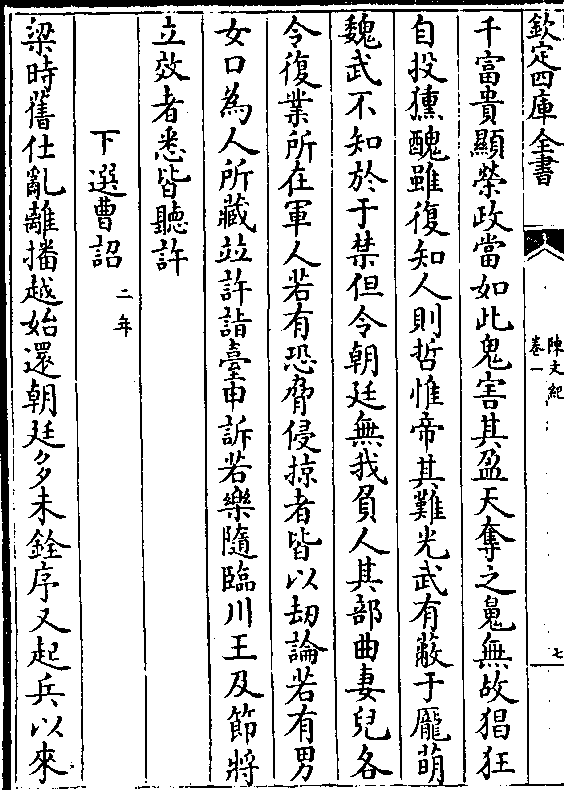 欽定四庫全書
陳文紀
卷一
七
千富貴顯榮政當如此鬼害其盈天奪之䰟無故猖狂
自投獯醜雖復知人則哲惟帝其難光武有蔽于龎萌
魏武不知於于禁但令朝廷無我負人其部曲妻兒各
令復業所在軍人若有恐脅侵掠者皆以劫論若有男
女口為人所藏竝許詣臺申訴若樂隨臨川王及節將
立效者悉皆聽許
下選曹詔 二年
梁時舊仕亂離播越始還朝廷多未銓序又起兵以來